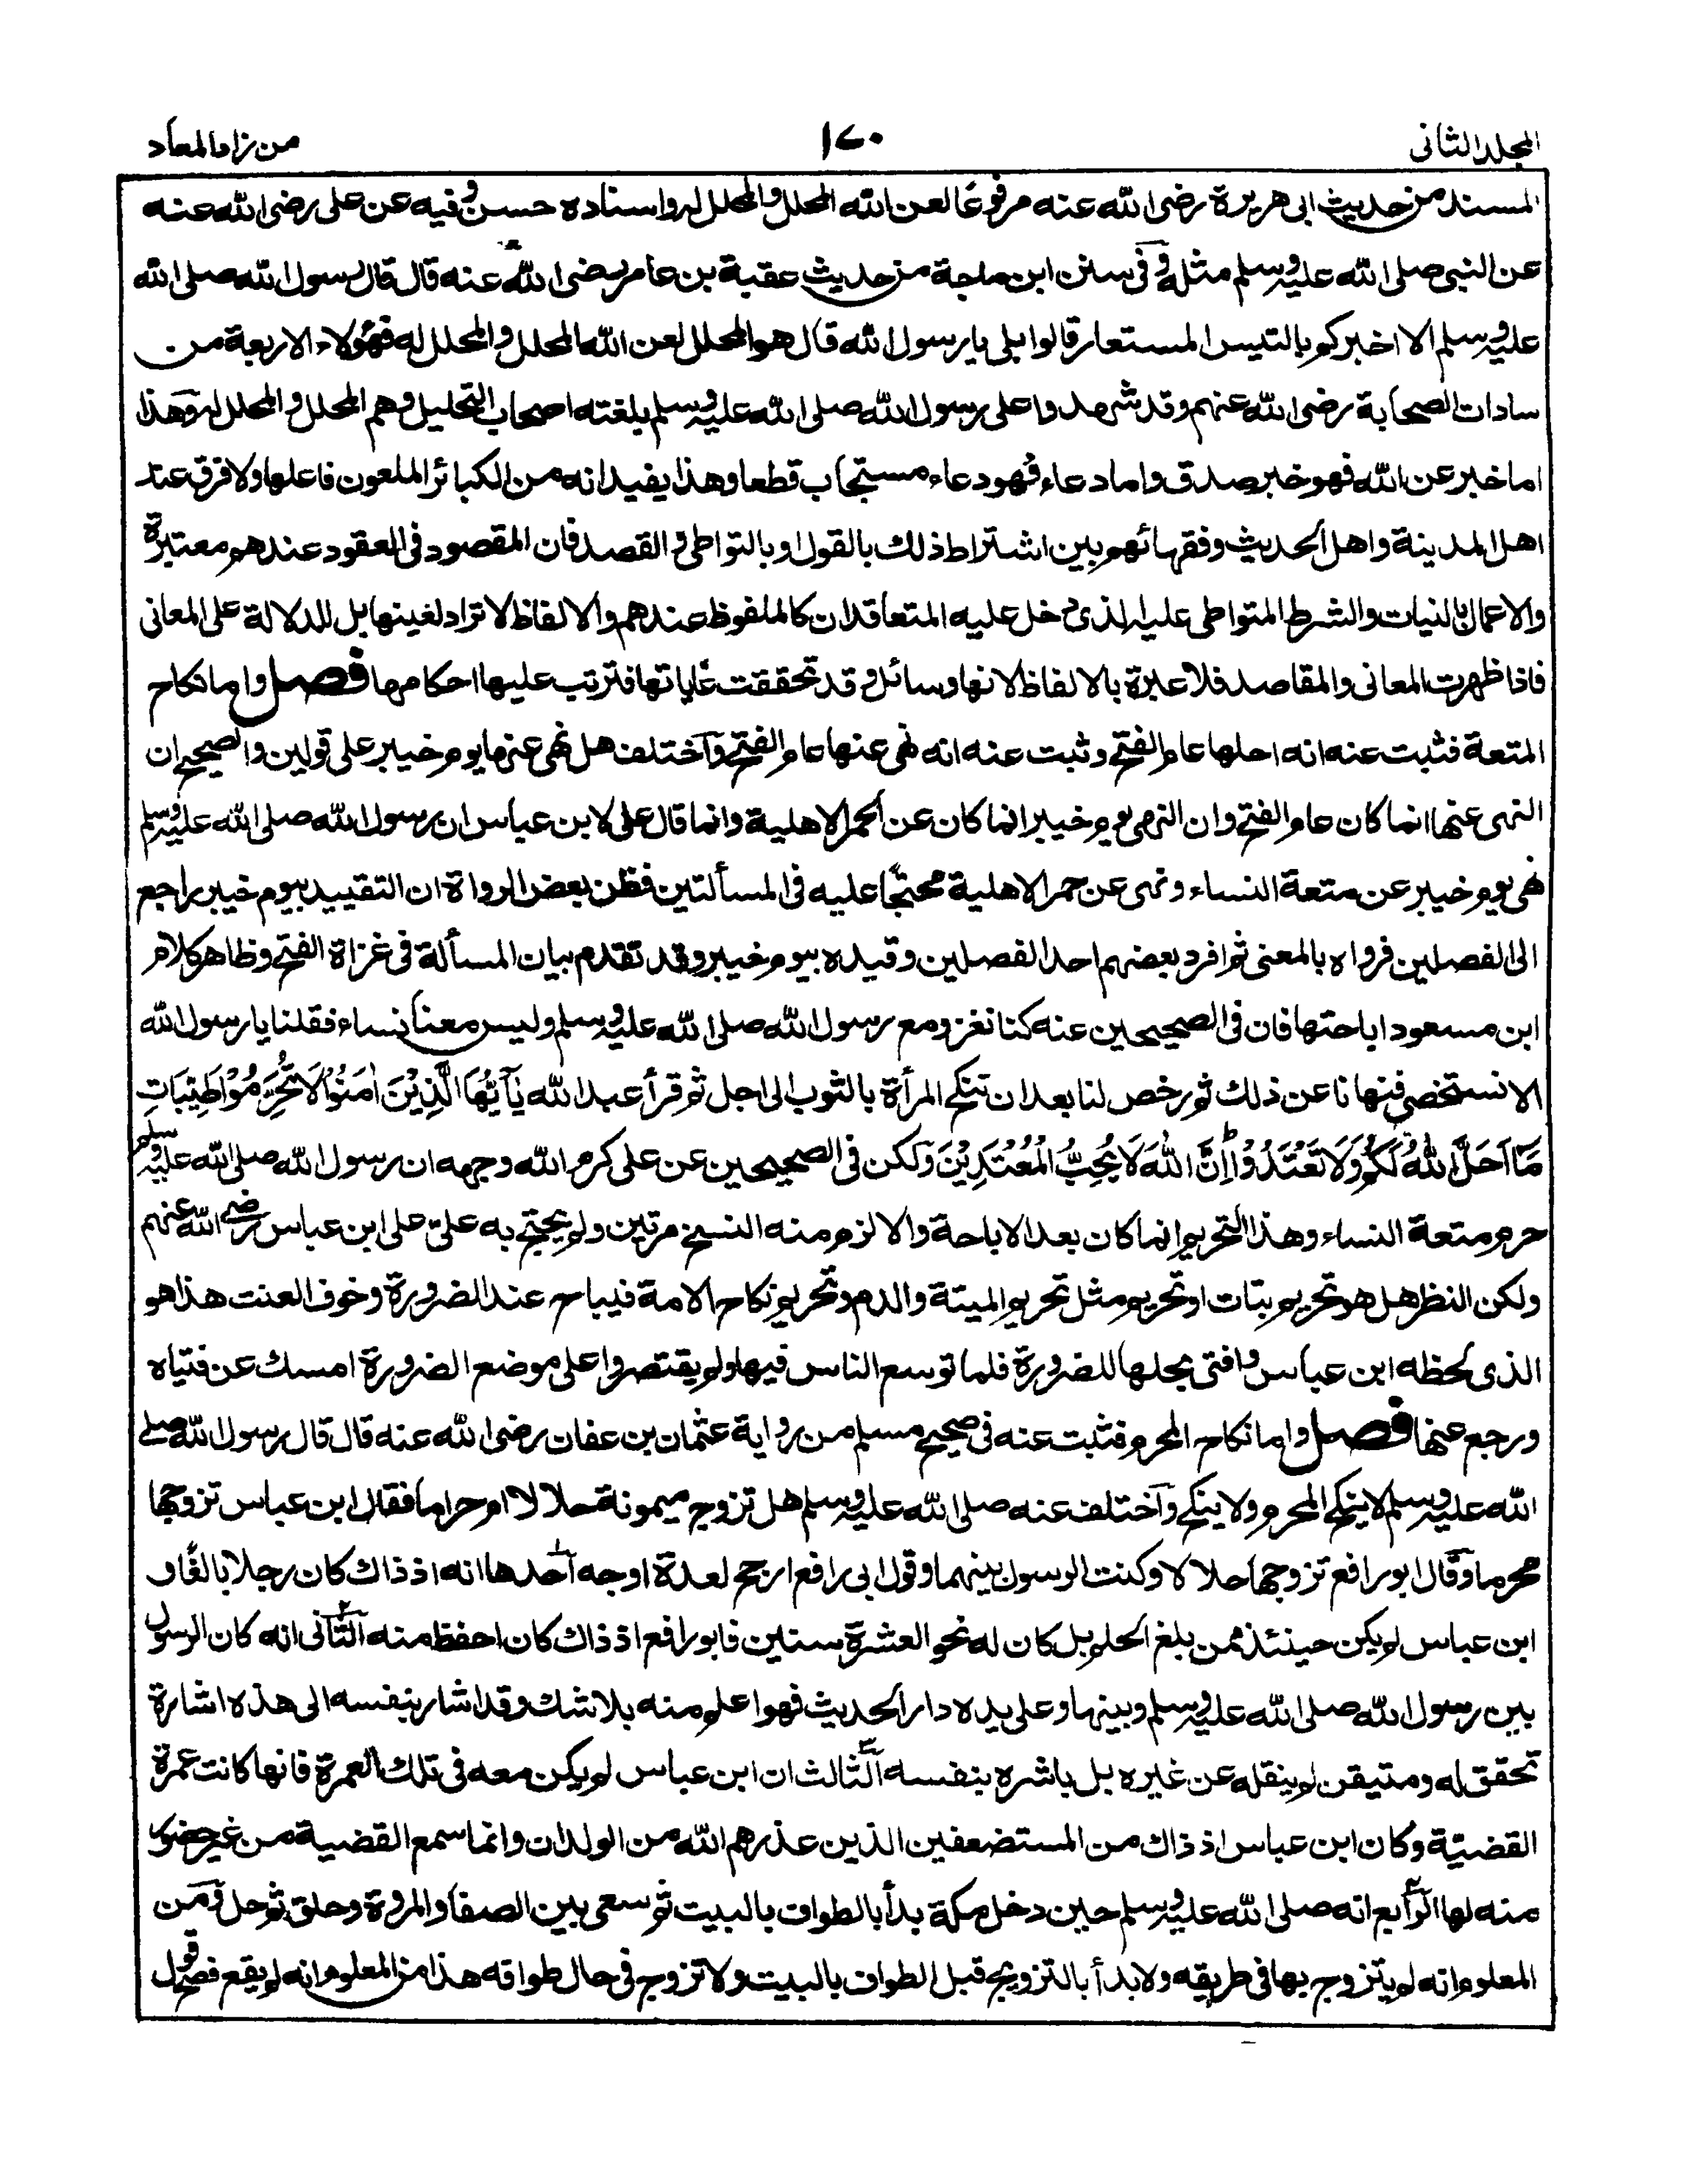 المجلد الثانى
١٧٠
من زاد المعاد
المسند من حديث ابى هريرة رضى الله عنه مرفوعا لعن الله المحلل والمحلل له واسناده حسن وفيه عن على رضى الله عنه
عن النبى صلى الله عليه وسلم مثله وفى سنن ابن ماجة من حديث عقبة بن عامر رضى الله عنه قال قال رسول الله صلى الله
عليه وسلم الا اخبركم بالتيس المستعار قالوا بلى يا رسول الله قال هو المحلل لعن الله المحلل والمحلل له فهؤلاء الاربعة من
سادات الصحابة رضى الله عنهم وقد شهدوا على رسول الله صلى الله عليه وسلم بلعنته اصحاب التحليل وهم المحلل والمحلل له وهذا
اما خبر عن الله فهو خبر صدق واما دعاء فهو دعاء مستجاب قطعا وهذا يفيد انه من الكبائر الملعون فاعلها ولا فرق عند
اهل المدينة واهل الحديث وفقهائهم بين اشتراط ذلك بالقول او بالتواطى والقصد فان المقصود فى العقود عندهم معتبرة
والاعمال بالنيات والشرط المتواطى عليه الذى دخل عليه المتعاقدان كالملفوظ عندهم والالفاظ لا تراد لعينها بل للدلالة على المعانى
فاذا ظهرت المعانى والمقاصد فلا عبرة بالالفاظ لانها وسائل وقد تحققت غاياتها فترتب عليها احكامها فصل واما نكاح
المتعة فثبت عنه انه احلها عام الفتح وثبت عنه انه نهى عنها عام الفتح واختلف هل نهى عنها يوم خيبر على قولين والصحيح ان
النهى عنها انما كان عام الفتح وان النهى يوم خيبر انما كان عن الحمر الاهلية وانما قال على لابن عباس ان رسول الله صلى الله عليه وسلم
نهى يوم خيبر عن متعة النساء ونهى عن حمر الاهلية محتجا عليه فى المسألتين فظن بعض الرواة ان التقييد بيوم خيبر راجع
الى الفصلين فرواه بالمعنى ثم افرد بعضهم احد الفصلين وقيده بيوم خيبر وقد تقدم بيان المسألة فى غزاة الفتح وظاهر كلام
ابن مسعود اباحتها فان فى الصحيحين عنه كنا نغزو مع رسول الله صلى الله عليه وسلم وليس معنا نساء فقلنا يا رسول الله
الا نستخصى فنهانا عن ذلك ثم رخص لنا بعد ان تنكح المرأة بالثوب الى اجل ثم قرأ عبد الله يٰٓاَيُّهَا الَّذِيْنَ اٰمَنُوْا لَا تُحَرِّمُوْا طَيِّبَاتِ
مَآ اَحَلَّ اللهُ لَكُمْ وَلَا تَعْتَدُوْا اِنَّ اللهَ لَا يُحِبُّ الْمُعْتَدِيْنَ ولكن فى الصحيحين عن على كرم الله وجهه ان رسول الله صلى الله عليه وسلم
حرم متعة النساء وهذا التحريم انما كان بعد الاباحة والا لزم منه النسخ مرتين ولم يحتج به على على ابن عباس رضى الله عنهم
ولكن النظر هل هو تحريم بتات او تحريم مثل تحريم الميتة والدم وتحريم نكاح الامة فيباح عند الضرورة وخوف العنت هذا هو
الذى لحظه ابن عباس وافتى بحلها للضرورة فلما توسع الناس فيها ولم يقتصروا على موضع الضرورة امسك عن فتياه
ورجع عنها فصل واما نكاح المحرم فثبت عنه فى صحيح مسلم من رواية عثمان بن عفان رضى الله عنه قال قال رسول الله صلى
الله عليه وسلم لا ينكح المحرم ولا ينكح واختلف عنه صلى الله عليه وسلم هل تزوج ميمونة حلالا ام حراما فقال ابن عباس تزوجها
محرما وقال ابو رافع تزوجها حلالا وكنت الرسول بينهما وقول ابى رافع ارجح لعدة اوجه احدها انه اذ ذاك كان رجلا بالغا و
ابن عباس لم يكن حينئذ ممن بلغ الحلم بل كان له نحو العشرة سنين فابو رافع اذ ذاك كان احفظ منه الثانى انه كان الرسول
بين رسول الله صلى الله عليه وسلم وبينها وعلى يده دار الحديث فهو اعلم منه بلا شك وقد اشار بنفسه الى هذه اشارة
تحقق له ومتيقن لم ينقله عن غيره بل باشره بنفسه الثالث ان ابن عباس لم يكن معه فى تلك العمرة فانها كانت عمرة
القضية وكان ابن عباس اذ ذاك من المستضعفين الذين عذرهم الله من الولدان وانما سمع القضية من غير حضور
منه لها الرابع انه صلى الله عليه وسلم حين دخل مكة بدأ بالطواف بالبيت ثم سعى بين الصفا والمروة وحلق ثم حل ومن
المعلوم انه لم يتزوج بها فى طريقه ولا بدأ بالتزويج قبل الطواف بالبيت ولا تزوج فى حال طوافه هذا من المعلوم انه لم يقع فصح قول